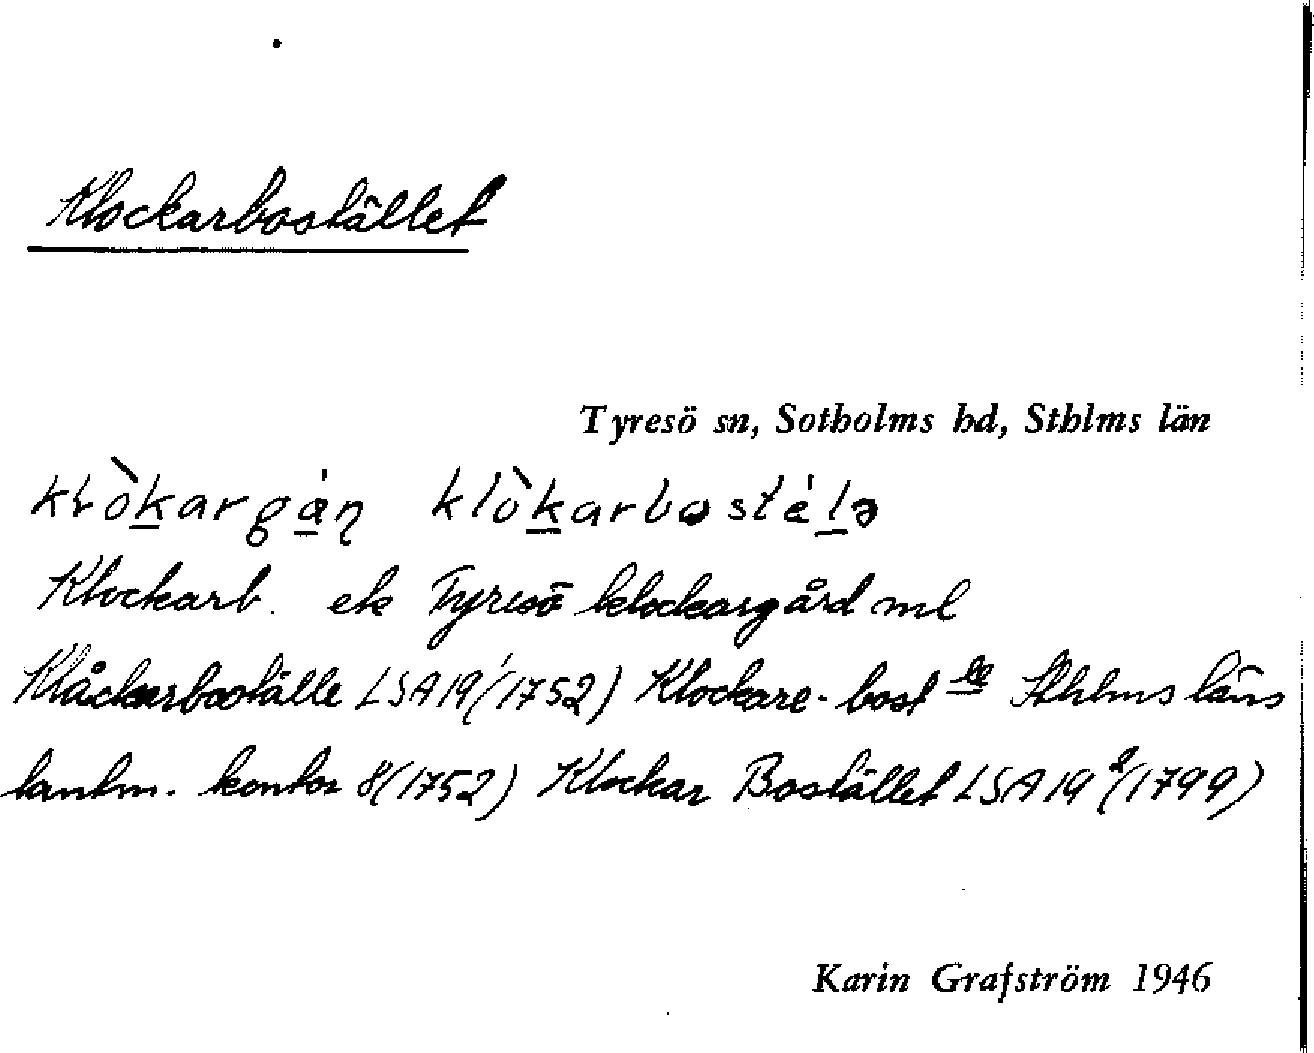 Klockarbostället
Tyresö sn, Sotholms hd, Sthlms län
klòkargáɳ klòkarbostélə
Klockarb. ek Tyresö klockargård ml
Klåckarboställe LSA 19¹(1752) Klockare-bost le Sthlms läns
lantm. kontor 8(1752) Klockar Bostället LSA 19²(1799)
Karin Grafström 1946